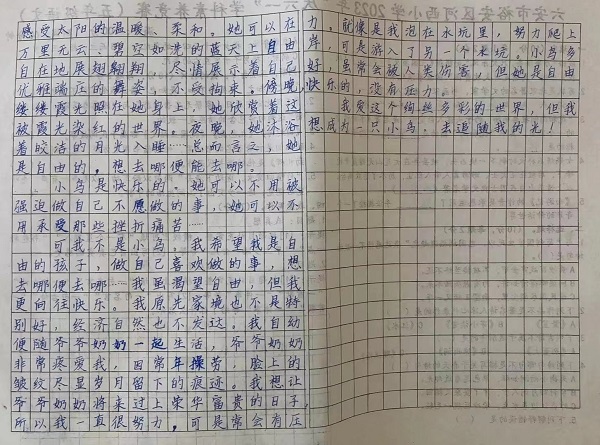 感受太阳的温暖、柔和。她可以在
万里无云、碧空如洗的蓝天上自由
自在地展翅翱翔，尽情展示着自己
优雅端庄的舞姿，不受拘束。傍晚，
缕缕霞光照在她身上，她欣赏着这
被霞光染红的世界。夜晚，她沐浴
着皎洁的月光入睡……总而言之，她
是自由的。想去哪便能去哪。
小鸟是快乐的。她可以不用被
强迫做自己不愿做的事，她可以不
用承受那些挫折痛苦……
可我不是小鸟，我希望我是自
由的孩子，做自己喜欢做的事，想
去哪便去哪……我虽渴望自由，但我
更向往快乐。我原先家境也不是特
别好，经济自然也不发达。我自幼
便随爷爷奶奶一起生活，爷爷奶奶
非常疼爱我，因常年操劳，脸上的
皱纹尽显岁月留下的痕迹。我想让
爷爷奶奶将来过上荣华富贵的日子，
所以我一直很努力。可是常会有压
力。就像是我泡在水坑里，努力爬上
岸，可是游入了另一个水坑。小鸟多
好，虽常会被人类伤害，但她是自由
快乐的，没有压力。
我爱这个绚丝多彩的世界，但我
想成为一只小鸟。去追随我的光！